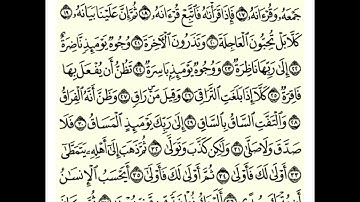 جَمْعَهُۥ وَقُرْءَانَهُۥ ١٧ فَإِذَا قَرَأْنَٰهُ فَٱتَّبِعْ قُرْءَانَهُۥ ١٨ ثُمَّ إِنَّ عَلَيْنَا بَيَانَهُۥ ١٩
كَلَّا بَلْ تُحِبُّونَ ٱلْعَاجِلَةَ ٢٠ وَتَذَرُونَ ٱلْءَاخِرَةَ ٢١ وُجُوهٌ يَوْمَئِذٍ نَّاضِرَةٌ
٢٢ إِلَىٰ رَبِّهَا نَاظِرَةٌ ٢٣ وَوُجُوهٌ يَوْمَئِذٍۭ بَاسِرَةٌ ٢٤ تَظُنُّ أَن يُفْعَلَ بِهَا
فَاقِرَةٌ ٢٥ كَلَّآ إِذَا بَلَغَتِ ٱلتَّرَاقِىَ ٢٦ وَقِيلَ مَنْ رَاقٍ ٢٧ وَظَنَّ أَنَّهُ ٱلْفِرَاقُ
٢٨ وَٱلْتَفَّتِ ٱلسَّاقُ بِٱلسَّاقِ ٢٩ إِلَىٰ رَبِّكَ يَوْمَئِذٍ ٱلْمَسَاقُ ٣٠ فَلَا
صَدَّقَ وَلَا صَلَّىٰ ٣١ وَلَٰكِن كَذَّبَ وَتَوَلَّىٰ ٣٢ ثُمَّ ذَهَبَ إِلَىٰٓ أَهْلِهِۦ يَتَمَطَّىٰٓ
٣٣ أَوْلَىٰ لَكَ فَأَوْلَىٰ ٣٤ ثُمَّ أَوْلَىٰ لَكَ فَأَوْلَىٰٓ ٣٥ أَيَحْسَبُ ٱلْإِنسَٰنُ